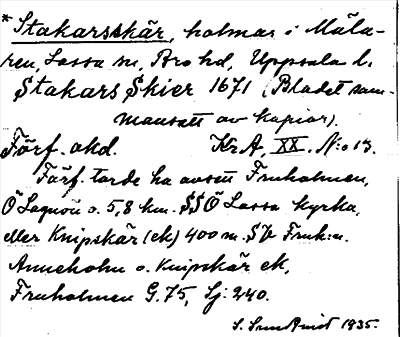 * Stakarsskär, holmar i Mäla-
ren, Lossa sn, Bro hd, Uppsala l.
Stakars Skier 1671 (Bladet sam-
mansatt av kopior).
Förf. okd. Kr A. XX. N:o 13.
Förf. torde ha avsett Fruholmen,
Ö Lagnön o. 5,8 km. SSÖ Lossa kyrka,
eller Knipskär (ek) 400 m. SV Fruh:n.
Anneholm o. Knipskär ek,
Fruholmen G. 75, Sj: 240.
S. Sundkvist 1935.